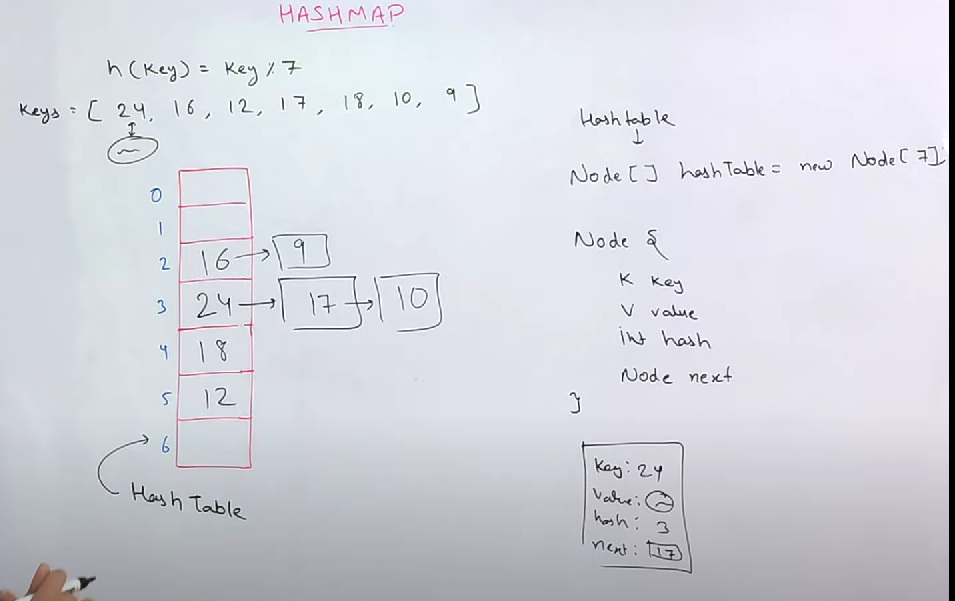 HASHMAP
h(Key) = Key % 7
Keys = [ 24, 16, 12, 17, 18, 10, 9 ]
0
1
2 16 → 9
3 24 → 17 → 10
4 18
5 12
6
Hash Table
Hashtable
↓
Node[] hashTable = new Node[7];
Node {
K Key
V value
int hash
Node next
}
Key: 24
Value: ~
hash: 3
next: 17